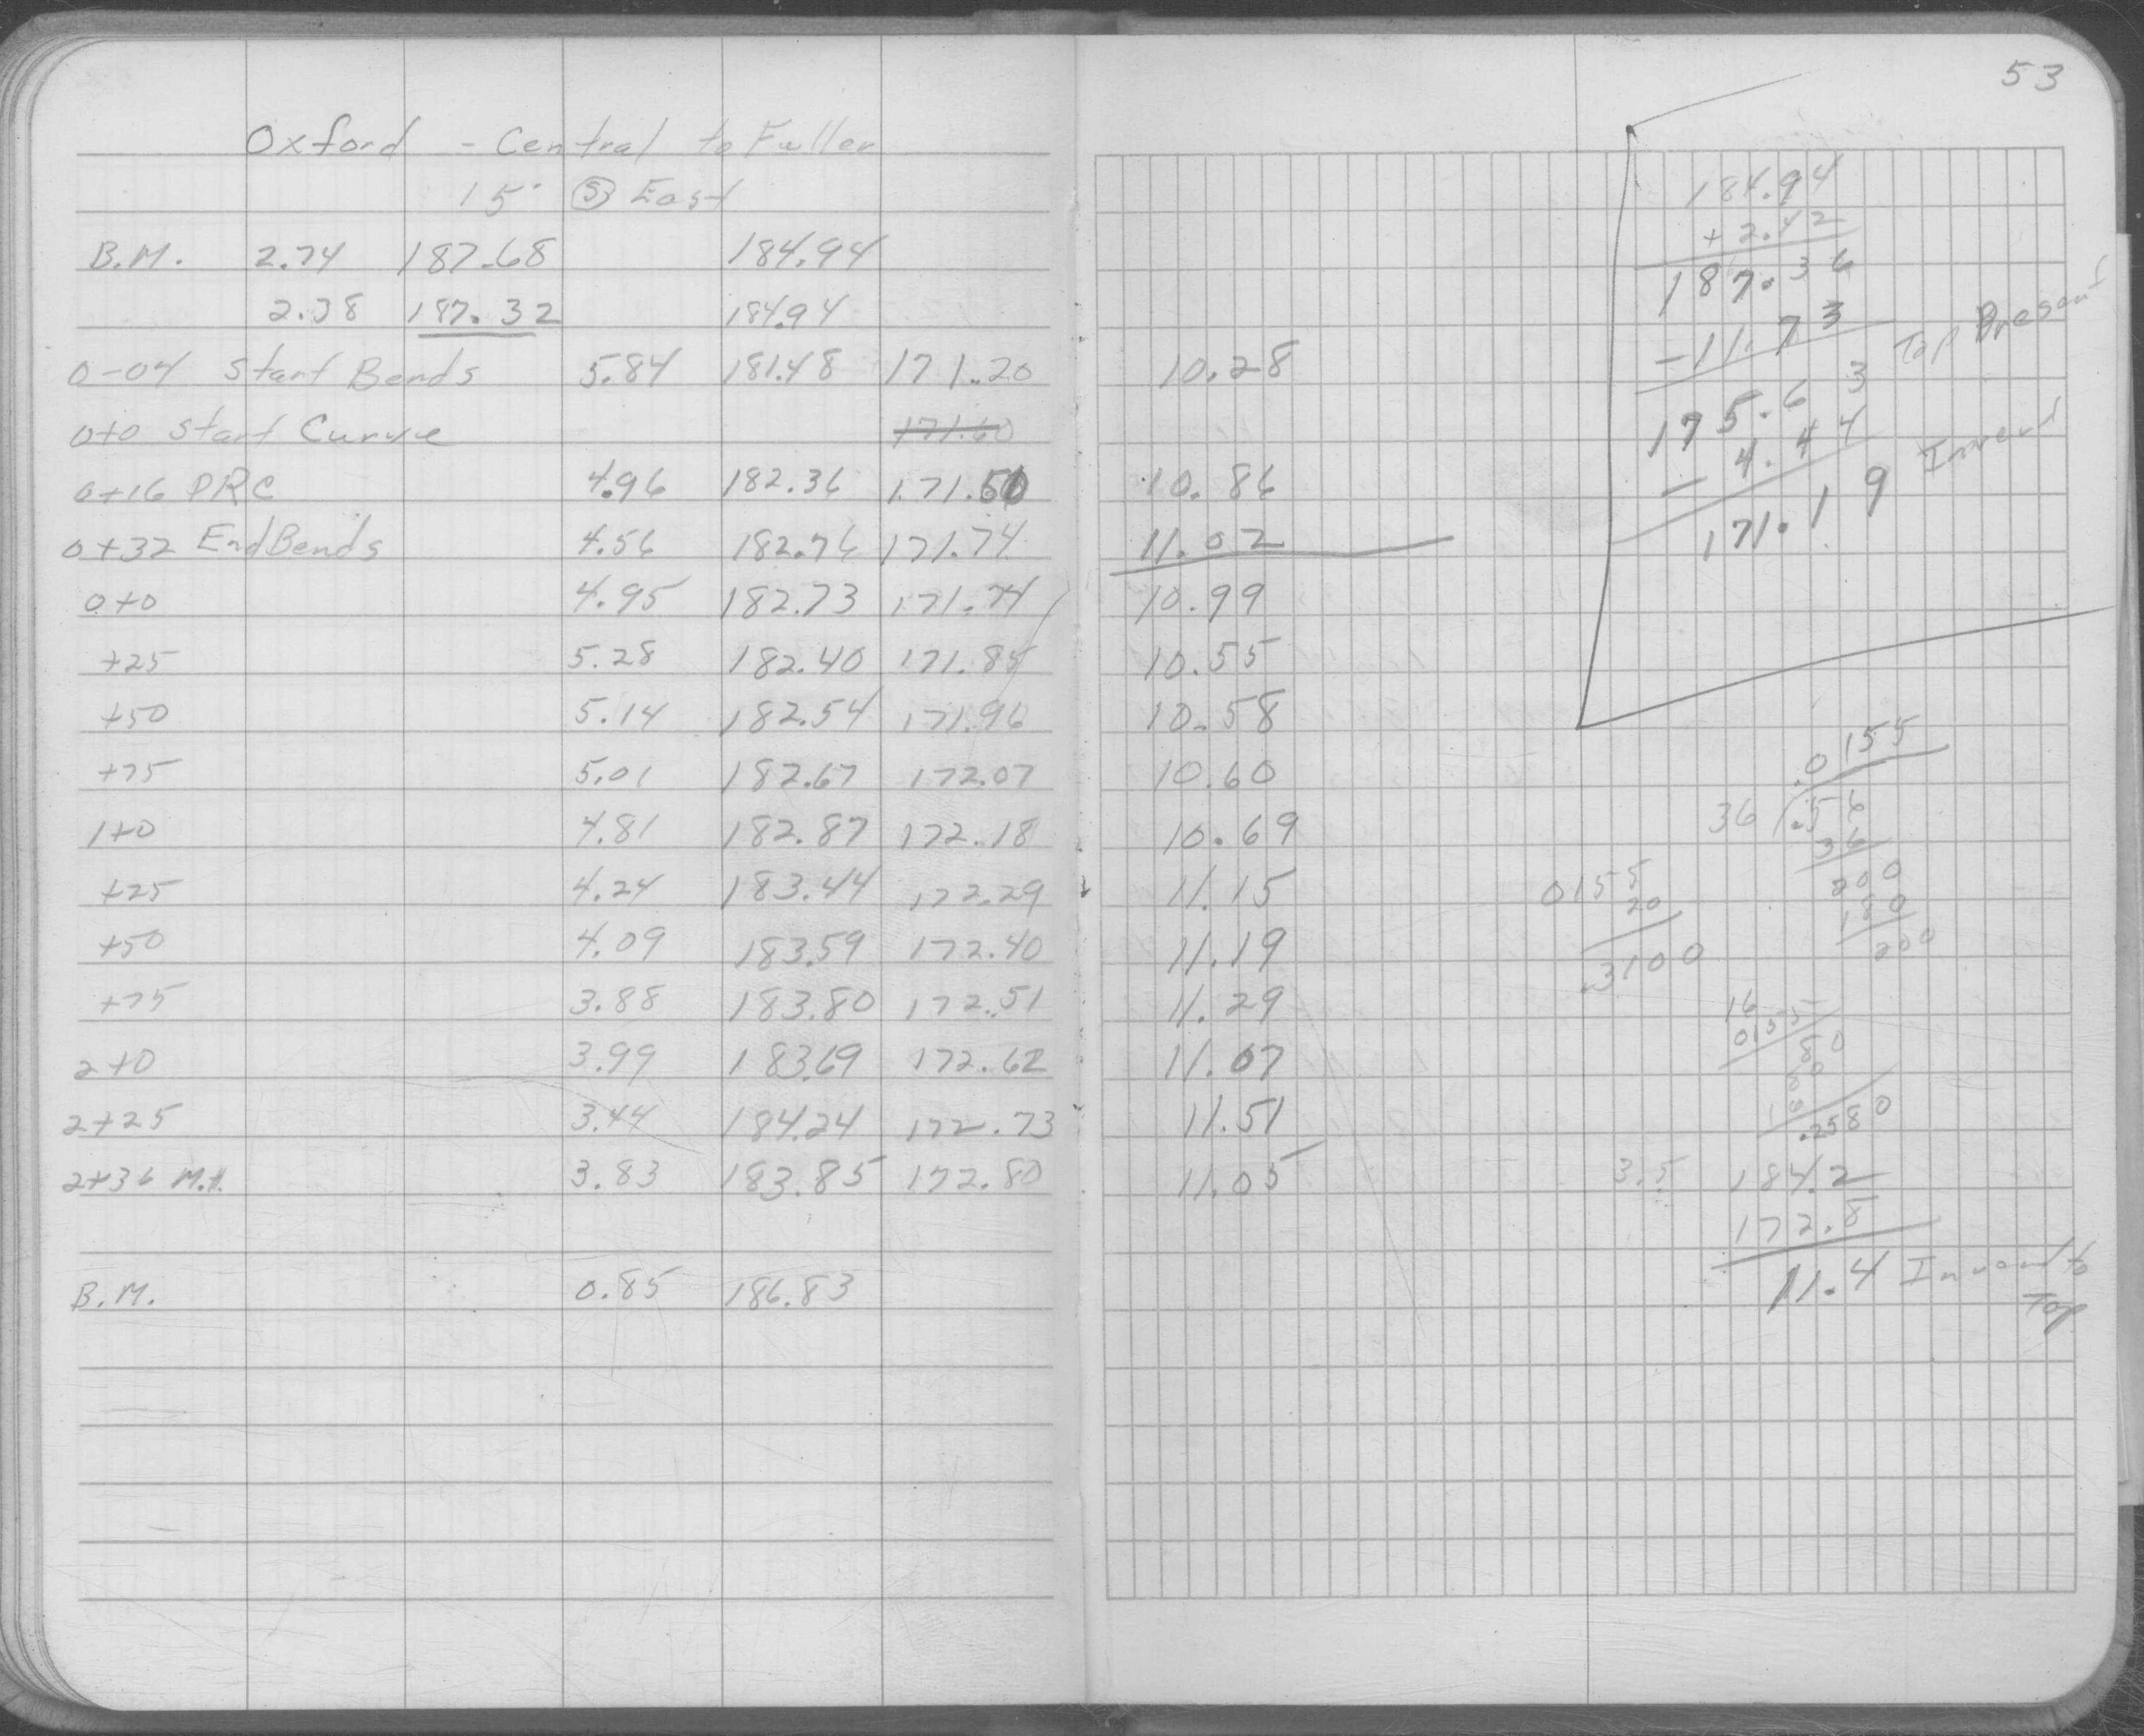 53
Oxford - Central to Fuller
15" Ⓢ East
B.M. 2.74 187.68 184.94
2.38 187.32 184.94
0-04 Start Bends 5.84 181.48 171.20 10.28
0+0 Start Curve 171.60
0+16 PRC 4.96 182.36 171.50 10.86
0+32 End Bends 4.56 182.76 171.74 11.02
0+0 4.95 182.73 171.74 10.99
+25 5.28 182.40 171.85 10.55
+50 5.14 182.54 171.96 10.58
+75 5.01 182.67 172.07 10.60
1+0 4.81 182.87 172.18 10.69
+25 4.24 183.44 172.29 11.15
+50 4.09 183.59 172.40 11.19
+75 3.88 183.80 172.51 11.29
2+0 3.99 183.69 172.62 11.07
2+25 3.44 184.24 172.73 11.51
2+36 M.H. 3.83 183.85 172.80 11.05
B.M. 0.85 186.83
184.94
+ 2.42
187.36
-11.73
175.63 Top Present
- 4.44
171.19 Invert
.0155
36 .56
36
200
180
200
0155
20
.3100
16
0155
80
80
16
.2580
3.5 184.2
172.8
11.4 Invert to
Top